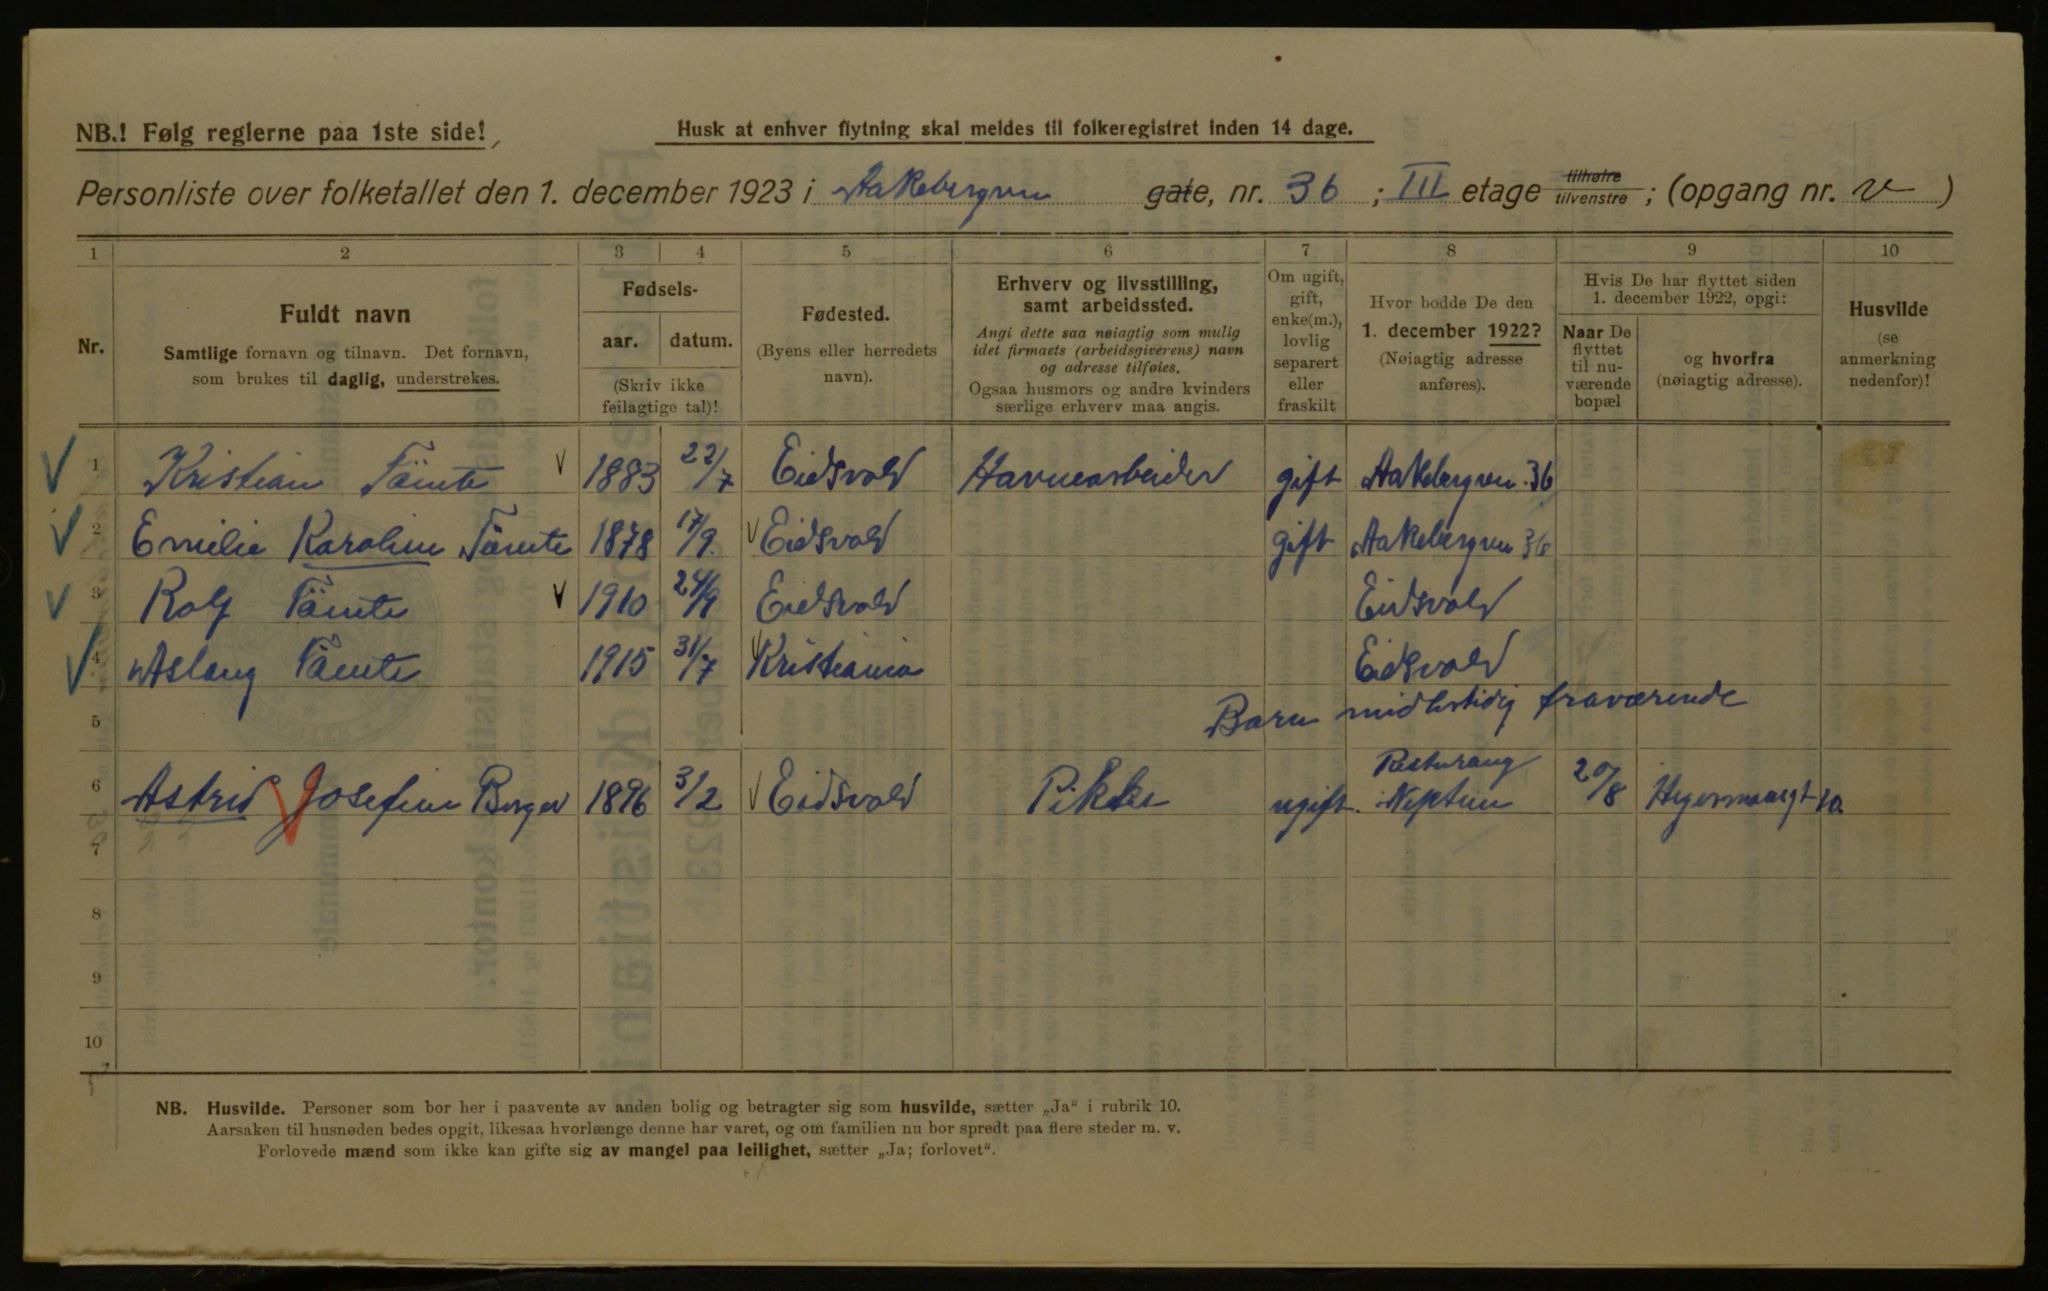 NB.! Følg reglerne paa 1ste side!
Husk at enhver flytning skal meldes til folkeregistret inden 14 dage.
Personliste over folketallet den 1. december 1923 i Aakebergven gate, nr. 36 ; III etage tilhøire tilvenstre ; (opgang nr. v )
1 2 3 4 5 6 7 8 9 10
Nr.
Fuldt navn
Samtlige fornavn og tilnavn. Det fornavn,
som brukes til daglig, understrekes.
Fødsels-
aar. datum.
(Skriv ikke
feilagtige tal)!
Fødested.
(Byens eller herredets
navn).
Erhverv og livsstilling,
samt arbeidssted.
Angi dette saa nøiagtig som mulig
idet firmaets (arbeidsgiverens) navn
og adresse tilføies.
Ogsaa husmors og andre kvinders
særlige erhverv maa angis.
Om ugift,
gift,
enke(m.),
lovlig
separert
eller
fraskilt
Hvor bodde De den
1. december 1922?
(Nøiagtig adresse
anføres).
Hvis De har flyttet siden
1. december 1922, opgi:
Naar De
flyttet
til nu-
værende
bopæl
og hvorfra
(nøiagtig adresse).
Husvilde
(se
anmerkning
nedenfor)!
1 Kristian Tömte 1883 22/7 Eidsvold Havnearbeider gift Aakebergven 36
2 Emilie Karoline Tömte 1878 17/9. Eidsvold gift Aakebergven 36
3 Rolf Tömte 1910 24/9 Eidsvold Eidsvold
4 Aslaug Tömte 1915 31/7 Kristiania Eidsvold
5 Barn midlertidig fraværende
6 Astrid Josefine Berger 1896 3/2 Eidsvold Pikke ugift. Resturang Neptun 20/8 10
7
8
9
10
NB. Husvilde. Personer som bor her i paavente av anden bolig og betragter sig som husvilde, sætter „Ja“ i rubrik 10.
Aarsaken til husnøden bedes opgit, likesaa hvorlænge denne har varet, og om familien nu bor spredt paa flere steder m. v.
Forlovede mænd som ikke kan gifte sig av mangel paa leilighet, sætter „Ja; forlovet“.